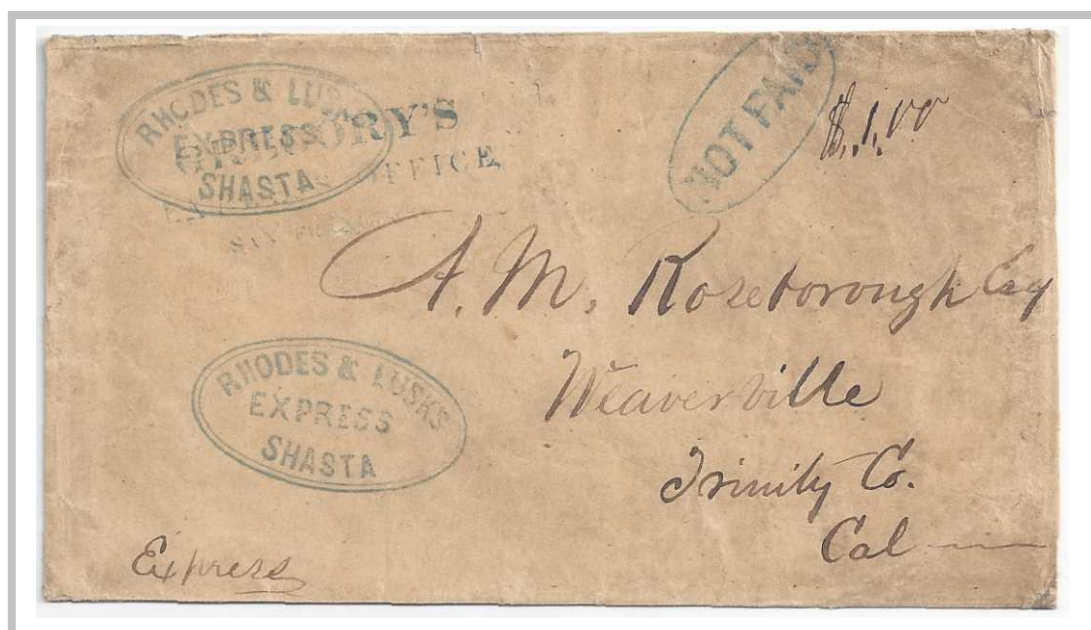 RHODES & LUSKS
EXPRESS
SHASTA
GREGORY'S
EXPRESS OFFICE
SAN
NOT PAID
$.1.00
A. M. Roseborough Esq
Weaverville
Trinity Co.
Cal
RHODES & LUSKS
EXPRESS
SHASTA
Express